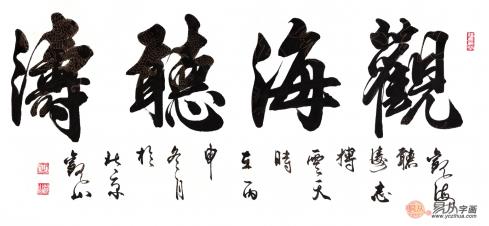 觀海聽濤
觀海
聽
濤志
搏
雲天
時
在丙
申
冬月
於
北京
易从字画
www.yczihua.com